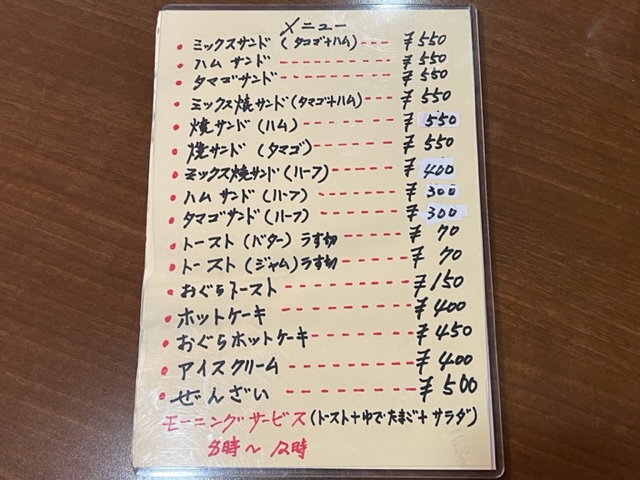 メニュー
・ミックスサンド (タマゴ+ハム) ---- ¥550
・ハムサンド ---- ¥550
・タマゴサンド ---- ¥550
・ミックス焼サンド(タマゴ+ハム) --- ¥550
・焼サンド(ハム) ---- ¥550
・焼サンド (タマゴ) ---- ¥550
・ミックス焼サンド(ハーフ) ---- ¥400
・ハムサンド (ハーフ) ---- ¥300
・タマゴサンド (ハーフ) ---- ¥300
・トースト (バター) うす切 ---- ¥70
・トースト (ジャム)うす切 ---- ¥70
・おぐらトースト ---- ¥150
・ホットケーキ ---- ¥400
・おぐらホットケーキ ---- ¥450
・アイスクリーム ---- ¥400
・ぜんざい ---- ¥500
モーニングサービス (トースト+ゆでたまご+サラダ)
8時〜12時